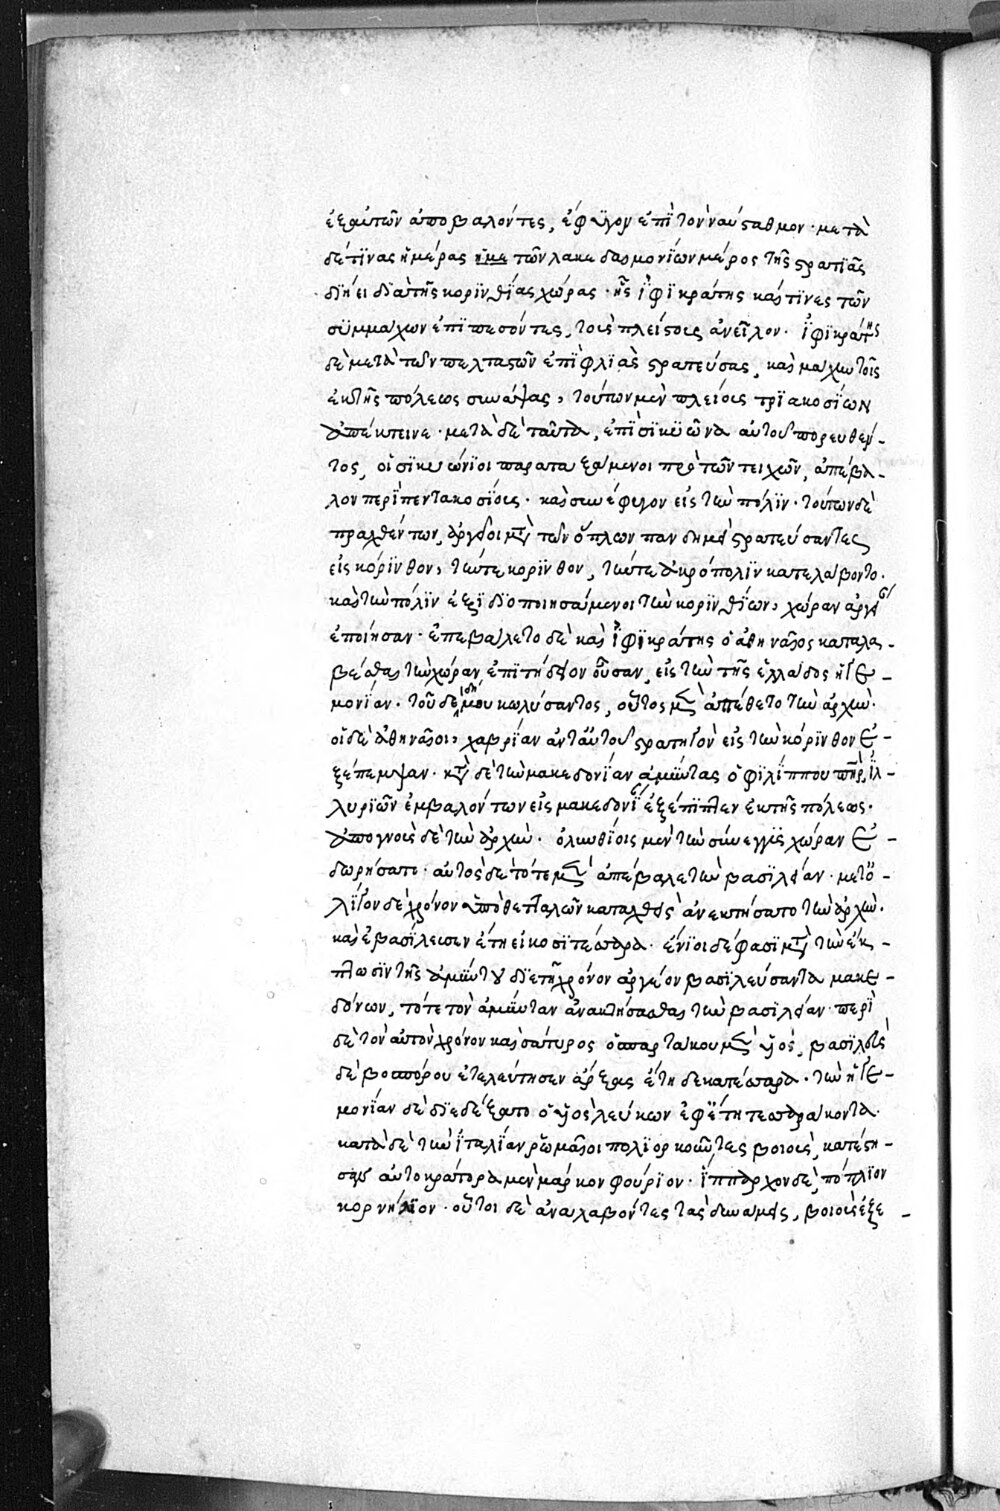 ἐξ αὐτῶν ἀποβαλόντες, ἔφυγον ἐπὶ τὸν ναύσταθμον· μετὰ
δέ τϊνας ἡμέρας τῶν λακεδαιμονίων μέρος τῆς στρατιᾶς
διῄει διὰ τῆς κορϊνθίας χώρας· ἧς ἰφικράτης καί τϊνες τῶν
συμμάχων ἐπιπεσόντες, τοὺς πλείστους ἀνεῖλον· ἰφικράτης
δὲ μετὰ τῶν πελταστῶν ἐπὶ φλιὰς στρατεύσας, καὶ μάχην τοῖς
ἐκ τῆς πόλεως συνάψας, τούτων μὲν πλείους τριακοσίων
ἀπέκτεινε· μετὰ δὲ ταῦτα, ἐπὶ σικυῶνα αὐτοῦ πορευθέν-
τος, οἱ σικυώνιοι παραταξάμενοι πρὸ τῶν τειχῶν, ἀπέβα-
λον περὶ πεντακοσίους· καὶ συνέφυγον εἰς τὴν πόλιν· τούτων δὲ
πραχθέντων, ἀργεῖοι μετὰ τῶν ὅπλων πανδημεὶ στρατεύσαντες
εἰς κόρινθον, τήν τε κόρινθον, τήν τε ἀκρόπολιν κατελάβοντο·
καὶ τὴν πόλιν ἐξιδιοποιησάμενοι τὴν κορινθίων, χώραν ἀργείαν
ἐποίησαν· ἐπεβάλετο δὲ καὶ ἰφικράτης ὁ ἀθηναῖος καταλα-
βέσθαι τὴν χώραν, ἐπιτήδειον οὖσαν, εἰς τὴν τῆς ἑλλάδος ἡγε-
μονίαν· τοῦ δὲ δήμου κωλύσαντος, οὗτος μὲν ἀπέθετο τὴν ἀρχήν·
οἱ δὲ ἀθηναῖοι, χαβρίαν ἀντ' αὐτοῦ στρατηγὸν εἰς τὴν κόρινθον ἐ-
ξέπεμψαν· κατὰ δὲ τὴν μακεδονίαν ἀμύντας ὁ φιλίππου πατὴρ, ἰλ-
λυριῶν ἐμβαλόντων εἰς μακεδονίαν ἐξέπιπτεν ἐκ τῆς πόλεως·
ἀπογνοὺς δὲ τὴν ἀρχήν· ὀλυνθίοις μὲν τὴν σύνεγγυς χώραν ἐ-
δωρήσατο· αὐτὸς δὲ τότε μὲν ἀπέβαλε τὴν βασιλείαν· μετ' ὀ-
λίγον δὲ χρόνον ὑπὸ θετταλῶν καταχθεὶς ἀνεκτήσατο τὴν ἀρχήν·
καὶ ἐβασίλευσεν ἔτη εἰκοσιτέσσαρα· ἔνιοι δέ φασι μετὰ τὴν ἔκ-
πτωσιν τῆς ἀμύντου διετῆ χρόνον ἀργεῖον βασιλεύσαντα μακε-
δόνων, τότε τὸν ἀμύνταν ἀνακτήσασθαι τὴν βασιλείαν· περὶ
δὲ τὸν αὐτὸν χρόνον καὶ σάτυρος ὁ σπαρτάκου μὲν υἱὸς, βασιλεὺς
δὲ βοσπόρου ἐτελεύτησεν ἄρξας ἔτη δεκατέσσαρα· τὴν ἡγε-
μονίαν δὲ διεδέξατο ὁ υἱὸς λεύκων ἐφ' ἔτη τεσσαράκοντα·
κατὰ δὲ τὴν ἰταλίαν ῥωμαῖοι πολιορκοῦντες βοιοὺς, κατέστη-
σαν αὐτοκράτορα μὲν μάρκον φούριον· ἵππαρχον δὲ, πόπλιον
κορνήλιον· οὗτοι δὲ ἀναλαβόντες τὰς δυνάμεις, βοιοὺς ἐξε-